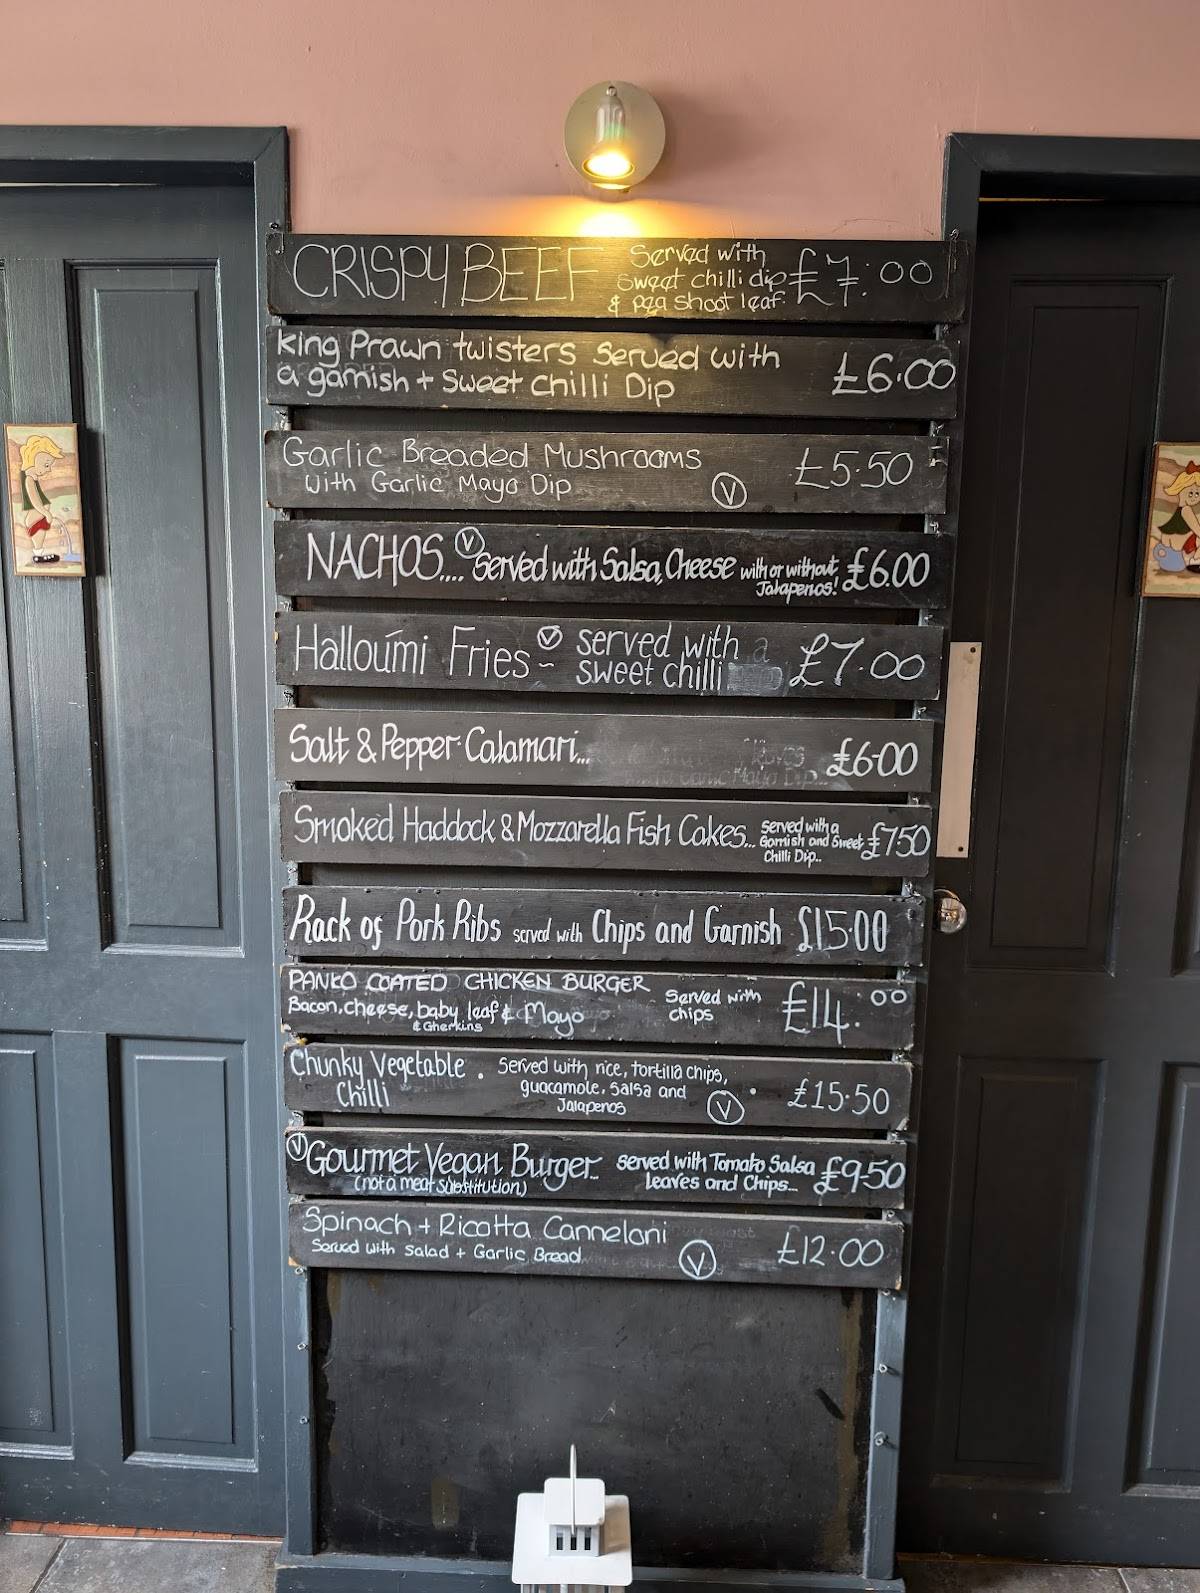 CRISPY BEEF Served with
sweet chilli dip
& pea shoot leaf. £7.00
King Prawn twisters Served with
a garnish + Sweet Chilli Dip £6.00
Garlic Breaded Mushrooms
with Garlic Mayo Dip V £5.50
NACHOS.... V Served with Salsa, Cheese with or without
Jalapenos! £6.00
Halloumi Fries ~ V served with a
sweet chilli £7.00
Salt & Pepper Calamari... £6.00
Smoked Haddock & Mozzarella Fish Cakes... Served with a
Garnish and Sweet
Chilli Dip.. £7.50
Rack of Pork Ribs served with Chips and Garnish £15.00
PANKO COATED CHICKEN BURGER
Bacon, cheese, baby leaf & Mayo
& Gherkins
Served with
chips £14.00
Chunky Vegetable
Chilli . Served with rice, tortilla chips,
guacamole, salsa and
Jalapenos V . £15.50
V Gourmet Vegan Burger..
(not a meat substitution)
served with Tomato Salsa
Leaves and Chips... £9.50
Spinach + Ricotta Canneloni
Served with salad + Garlic Bread V £12.00